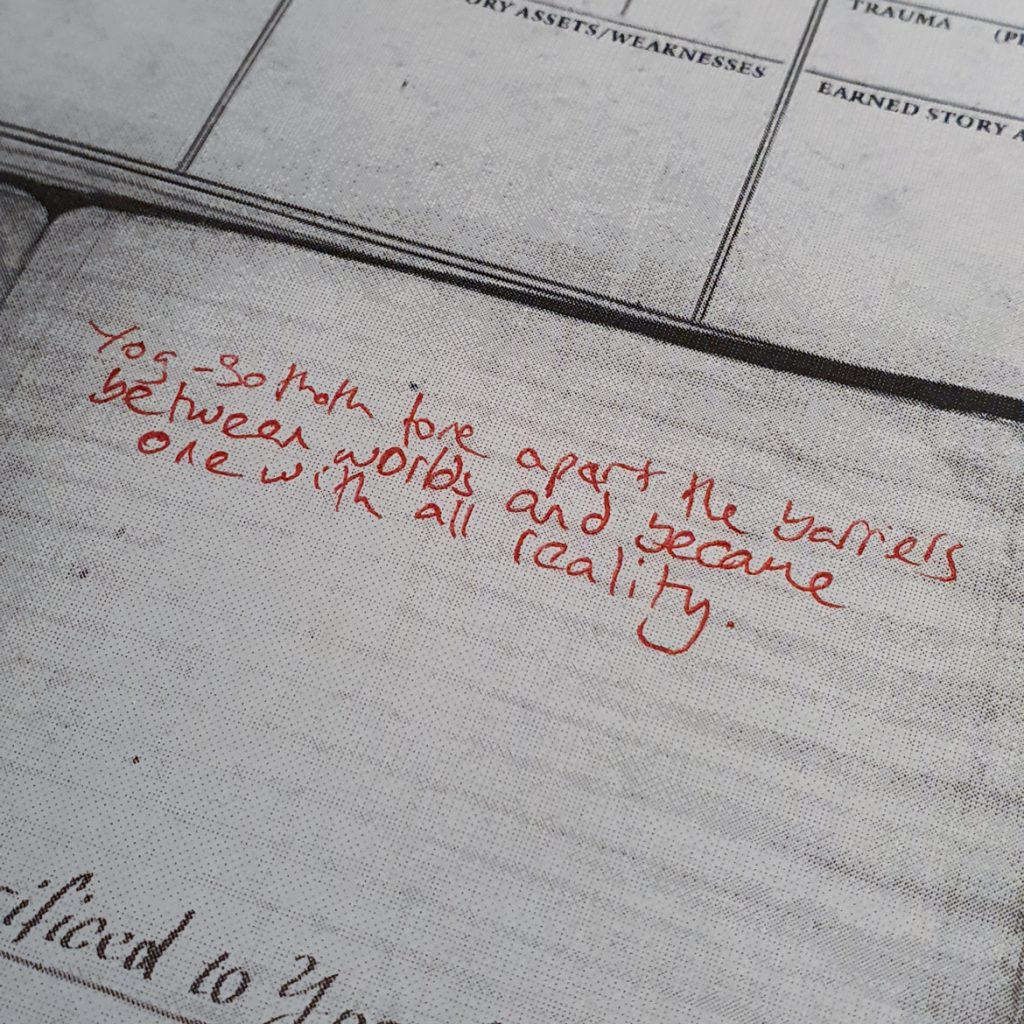 ORY ASSETS/WEAKNESSES
TRAUMA (PH
EARNED STORY A
Yog-Sothoth tore apart the barriers
between worlds and became
one with all reality.
rificed to Yo